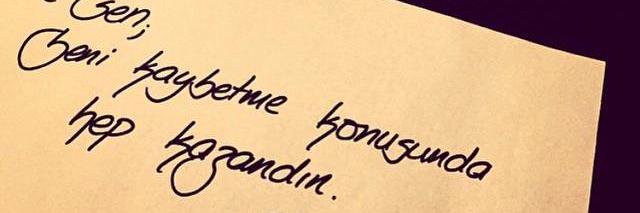 Sen;
Beni kaybetme konusunda
hep kazandın.